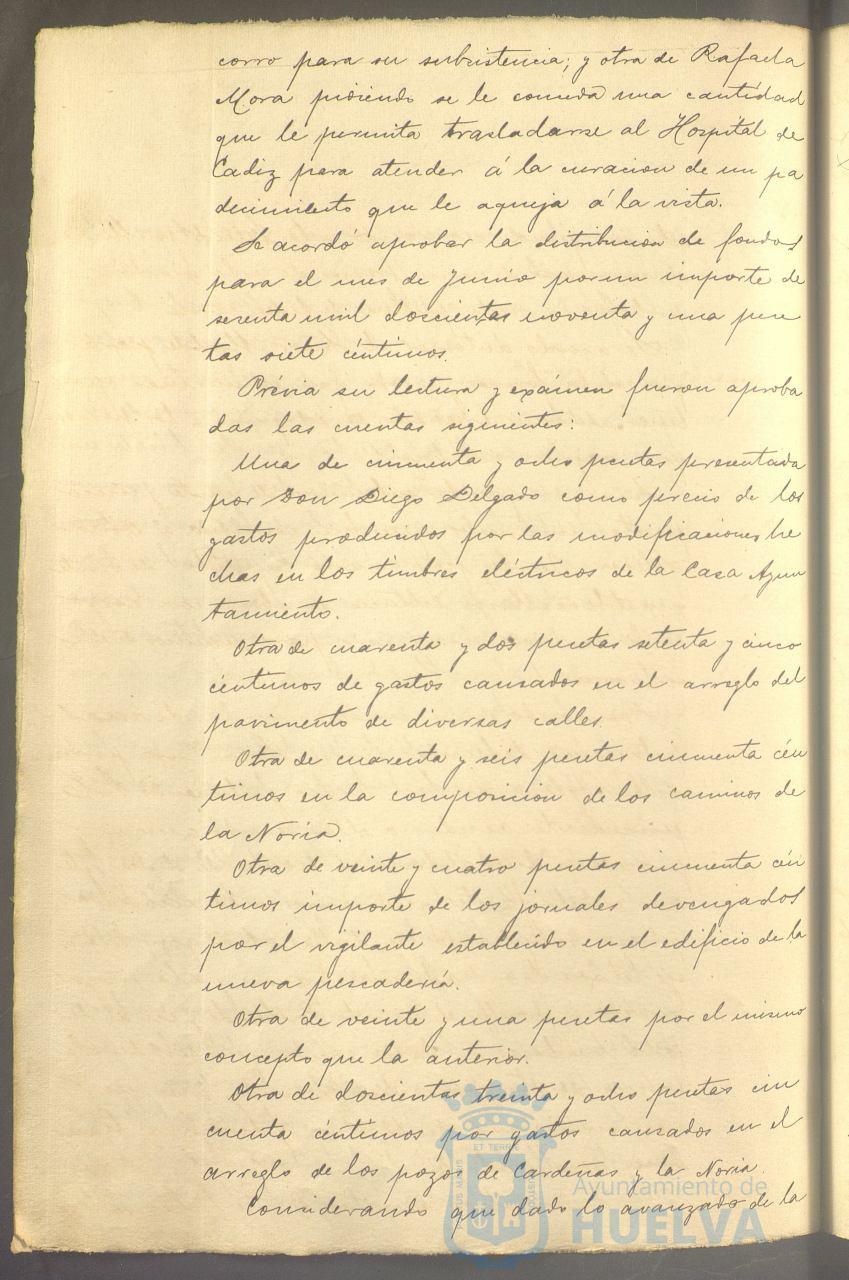 corro para su subsistencia; y otra de Rafaela
Mora pidiendo se le conceda una cantidad
que le permita trasladarse al Hospital de
Cadiz para atender á la curacion de un pa
decimiento que le aqueja á la vista.
Se acordó aprobar la distribucion de fondos
para el mes de Junio por un importe de
sesenta mil doscientas noventa y una pese
tas siete céntimos.
Prévia su lectura y exámen fueron aproba
das las cuentas siguientes:
Una de cincuenta y ocho pesetas presentada
por Don Diego Delgado como precio de los
gastos producidos por las modificaciones he
chas en los timbres eléctricos de la Casa Ayun
tamiento.
Otra de cuarenta y dos pesetas setenta y cinco
céntimos de gastos causados en el arreglo del
pavimento de diversas calles.
Otra de cuarenta y seis pesetas cincuenta cén
timos en la composicion de los caminos de
la Noria.
Otra de veinte y cuatro pesetas cincuenta cén
timos importe de los jornales devengados
por el vigilante establecido en el edificio de la
nueva pescadería.
Otra de veinte y una pesetas por el mismo
concepto que la anterior.
Otra de doscientas treinta y ocho pesetas cin
cuenta céntimos por gastos causados en el
arreglo de los pozos de Cardeñas y la Noria.
Considerando que dado lo avanzado de la
Ayuntamiento de
HUELVA